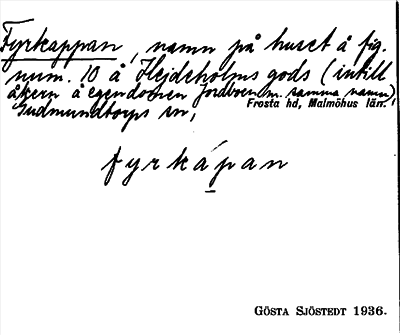 Fyrkappan, namn på huset å fig.
num. 10 å Hejdeholms gods (intill
åkern å egendomen Jordboen m. samma namn),
Gudmundtorps sn, Frosta hd, Malmöhus län.
fyrkápan
GÖSTA SJÖSTEDT 1936.